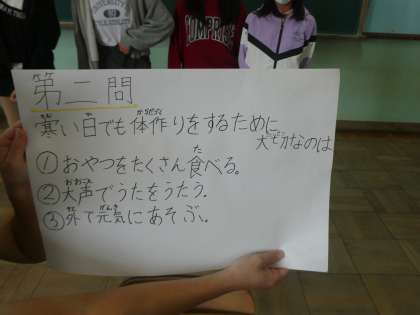 UNIVERSITY
COMPRISE
第二問
寒い日でも体作りをするために
大せつなのは
①おやつをたくさん食べる。
②大声でうたをうたう。
③外で元気にあそぶ。